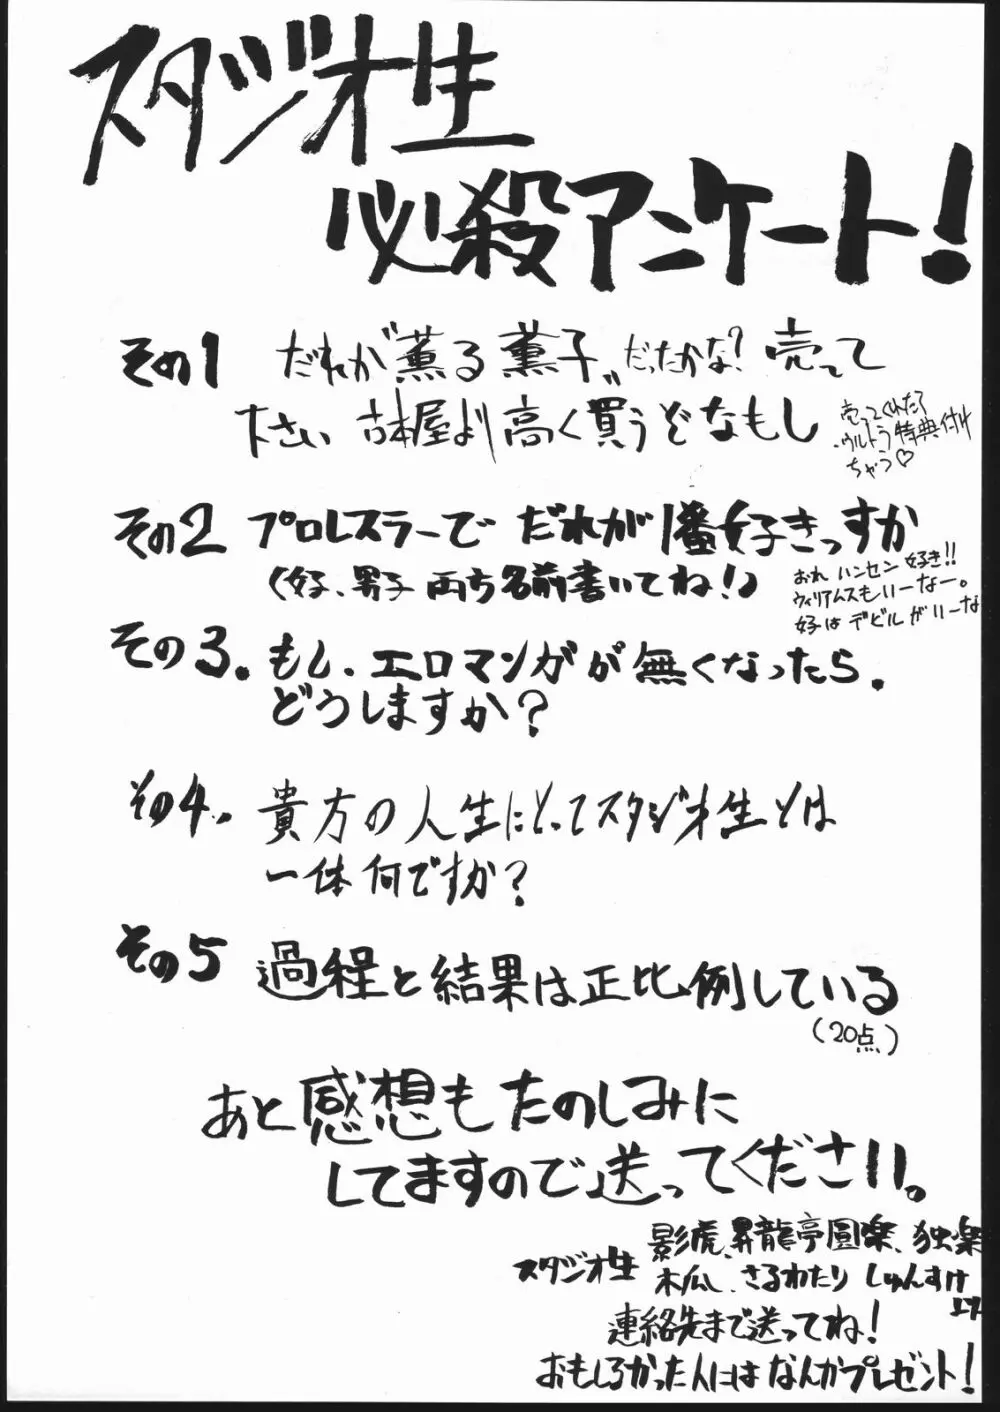 スタジオ生
必殺アンケート!
その1 だれが"薫る薫子"だったかな?売って
下さい 古本屋より高く買うぞなもし
売ってくれたら
ウルトラ特典付け
ちゃう♡
その2 プロレスラーで だれが1番好きっすか
(女子、男子 両方名前書いてね!)
おれ ハンセン 好き!!
ウィリアムスもいーなー。
女子は デビルがいーな
その3. もし、エロマンガが無くなったら.
どうしますか?
その4. 貴方の人生にとってスタジオ生とは
一体何ですか?
その5 過程と結果は正比例している
(20点)
あと感想もたのしみに
してますので送ってください。
スタジオ生 影虎、昇龍亭圓楽、独楽
木瓜し、さるわたり しゅんすけ
より
連絡先まで送ってね!
おもしろかった人にはなんかプレゼント!